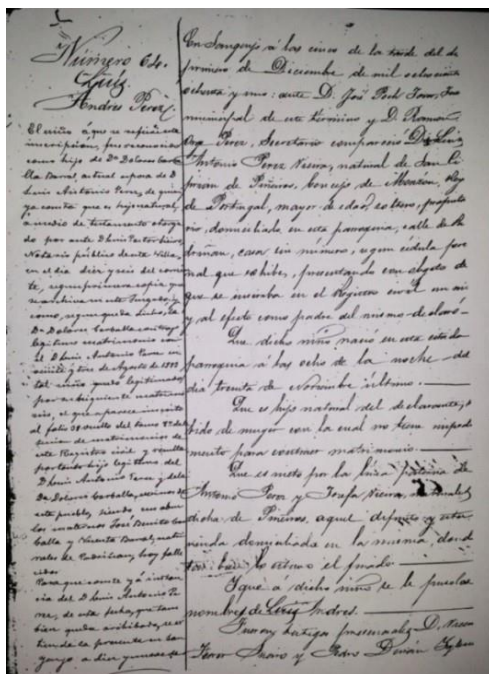 Número 64.
Luis
Andres Perez
El niño á que se refiere esta
inscripcion, fue reconocido
como hijo de Dª Dolores Carba
lla Barral, actual esposa de D.
Luis Antonio Perez, de quien
ya consta que es hijo natural,
á medio de testamento otorga
do por ante D. Luis Pastor
Notario público de esta Villa,
en el dia diez y seis del corrien
te, segun primera copia que
se archiva en este Juzgado, y
como, segun queda dicho, la
Dª Dolores Carballa contrajo
legitimo matrimonio con
el D. Luis Antonio Perez en
de Agosto de
tal niño quedó legitimado
por subsiguiente matrimo
nio, el que aparece inscrito
al folio del tomo de la
seccion de matrimonios de
este Registro civil y resulta
por tanto hijo legitimo del
D. Luis Antonio Perez y de la
Dª Dolores Carballa, vecinos de
este pueblo, siendo sus abue
los maternos José Benito Car
balla y Vicenta Barral, natu
rales de hoy falle
cidos.
Para que conste y á instan
cia del D. Luis Antonio Pe
rez, de esta fecha, que tam
bien queda archivada, se ex
tiende la presente en San
genjo á diez y nueve de
En Sangenjo á las cinco de la tarde del dia
primero de Diciembre de mil ochocientos
ochenta y uno: ante D. José Juez
municipal de este término y D. Ramon
Perez, Secretario compareció D. Luis
Antonio Perez Vieira, natural de San Ci
prian de Piñeiros, Concejo de Monzon, Reyno
de Portugal, mayor de edad, soltero, propieta
rio, domiciliado en esta parroquia, calle de
casa sin número, segun cédula perso
nal que exhibe, presentando con objeto de
que se inscriba en el Registro civil un niño
y al efecto como padre del mismo declaró:
Que dicho niño nació en esta citada
parroquia á las ocho de la noche del
dia treinta de Noviembre último.
Que es hijo natural del declarante, ha
bido de muger con la cual no tiene impedi
mento para contraer matrimonio.
Que es nieto por la linea paterna de
Antonio Perez y Josefa Vieira, naturales
dicha de Piñeiros, aquel difunto y esta
viuda domiciliada en la misma, donde
tambien lo estuvo el finado.
Y que á dicho niño se le puso los
nombres de Luis Andres.
Fueron testigos presenciales D.
Ferrer y Pedro